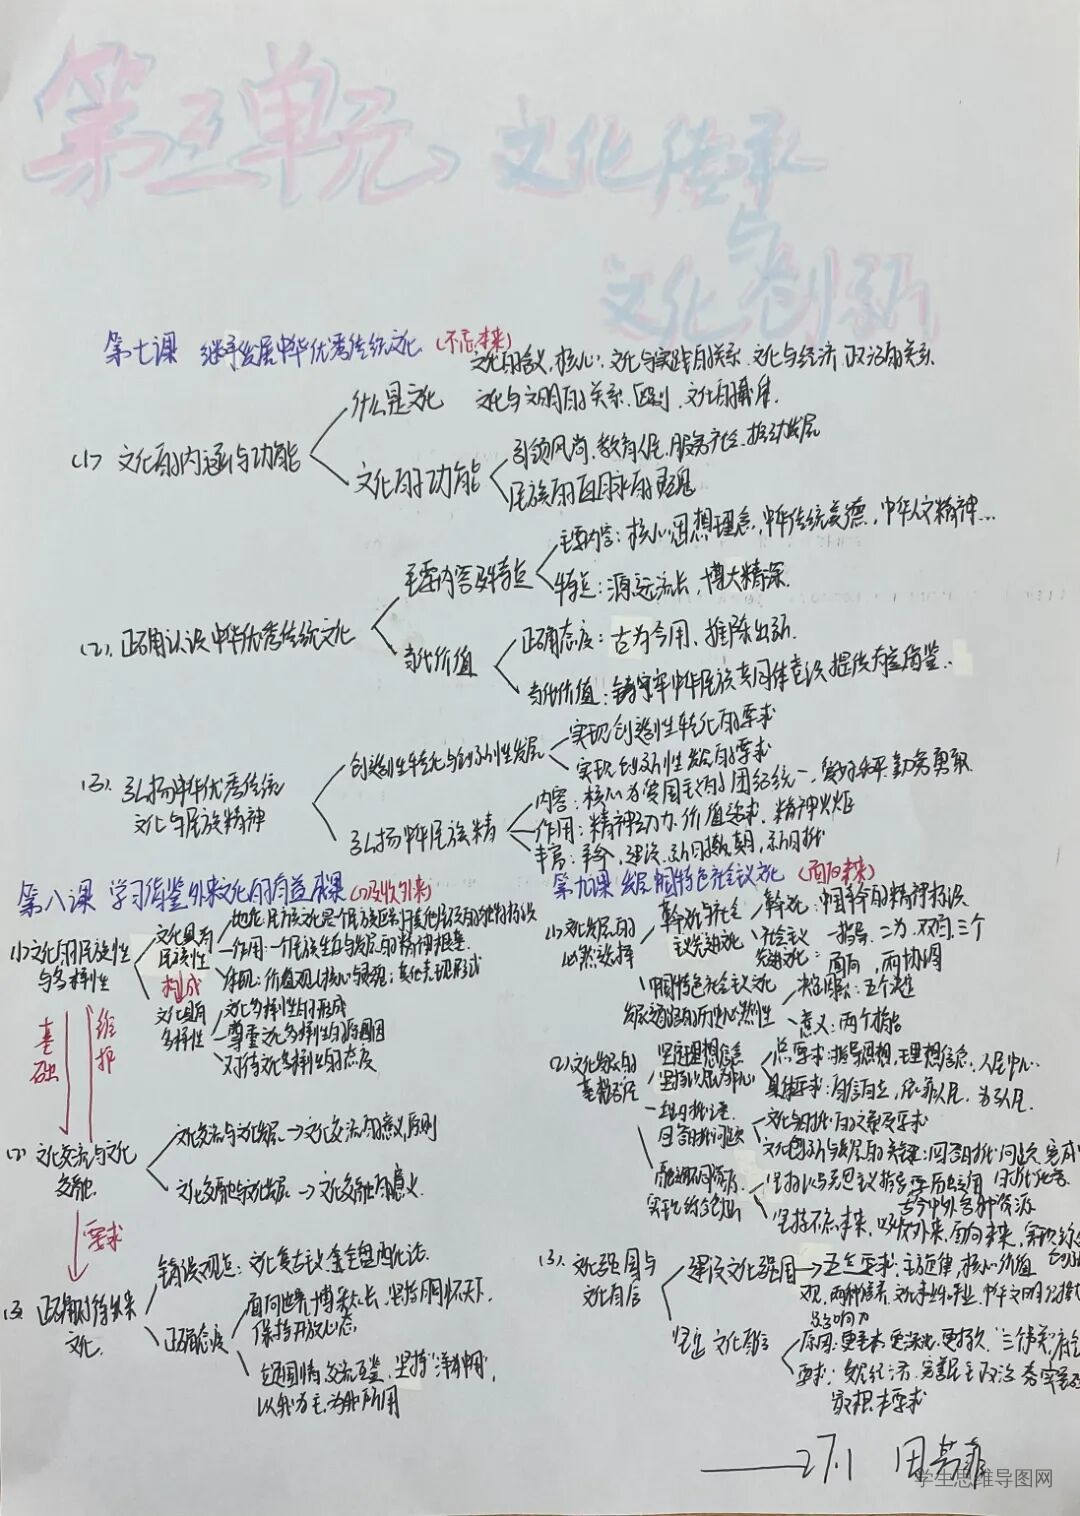 第三单元、文化传承
与
文化创新
第七课 继承发展中华优秀传统文化(不忘本来)
什么是文化
文化的含义,核心:文化与实践的关系.文化与经济.政治的关系.
文化与文明的关系.区别、文化的载体.
(1) 文化的内涵与功能
文化的功能
引领风尚、教育人民、服务社会、推动发展
民族的血脉的灵魂
主要内容及特点
主要内容:核心思想理念,中华传统美德,中华人文精神...
特点:源远流长,博大精深.
(2). 正确认识中华优秀传统文化
当代价值
正确态度:古为今用、推陈出新.
当代价值:铸牢中华民族共同体意识提供有益借鉴...
创造性转化与创新性发展
实现创造性转化的要求
实现创新性发展的要求
(3). 弘扬中华优秀传统
文化与民族精神
弘扬中华民族精
内容:核心为爱国主义的团结统一,爱好和平.勤劳勇敢
作用:精神动力.价值追求.精神火炬
丰富:革命,建设.新时期,新时代
第八课 学习借鉴外来文化的有益成果(吸收外来)
(1)文化的民族性
与多样性
文化具有
民族性
地位:民族文化是一个民族区别于其他民族的独特标识
作用:一个民族生存与发展的精神根基
体现:价值观(核心)灵魂;其他表现形式
构成
文化具有
多样性
文化多样性的形成
尊重文化多样性的原因
对待文化多样性的态度
基础
维护
(2) 文化交流与文化
交融
文化交流与文化发展→文化交流的意义,原则
文化交融与文化发展→文化交融的意义.
要求
(3) 正确对待外来
文化.
错误观点:文化复古主义.全盘西化论.
正确态度
面向世界,博采众长,坚持胸怀天下,
保持开放心态
立足国情,交流互鉴,坚持"洋为中用",
以我为主.为我所用
第九课 发展中国特色社会主义文化 (面向未来)
(1) 文化发展的
必然选择
革命文化与社会
主义先进文化
革命文化:中国革命的精神标识
社会主义
先进文化:
一指导、二为、双百、三个
面向,两协调
中国特色社会主义文化
发展道路的历史必然性
决定因素:五个决定
意义:两个指合
(2)文化发展的
基本路径
坚定理想信念
坚持以人民为中心
总要求:指导思想,理想信念,人民中心...
具体要求:自信自立,依靠人民,为了人民.
立足时代之基.
回答时代问题
文化与时代的交融及要求
文化创新与发展的关键:回答时代问题,完成
时代任务
融通不同资源.
实现综合创新
坚持以马克思主义指导,要用立用
古今中外各种资源
坚持不忘本来,吸收外来,面向未来,实现综合
创新
(3). 文化强国与
文化自信
建设文化强国→五点要求:主旋律,核心价值
观,两种培养.文化事业产业,中华文明传播力
及影响力
坚定文化自信
原因:更基本.更深沉.更持久.
要求:发展经济.完善民主政治.夯实基础
最根本要求
——27.1 田芳菲
学生思维导图网